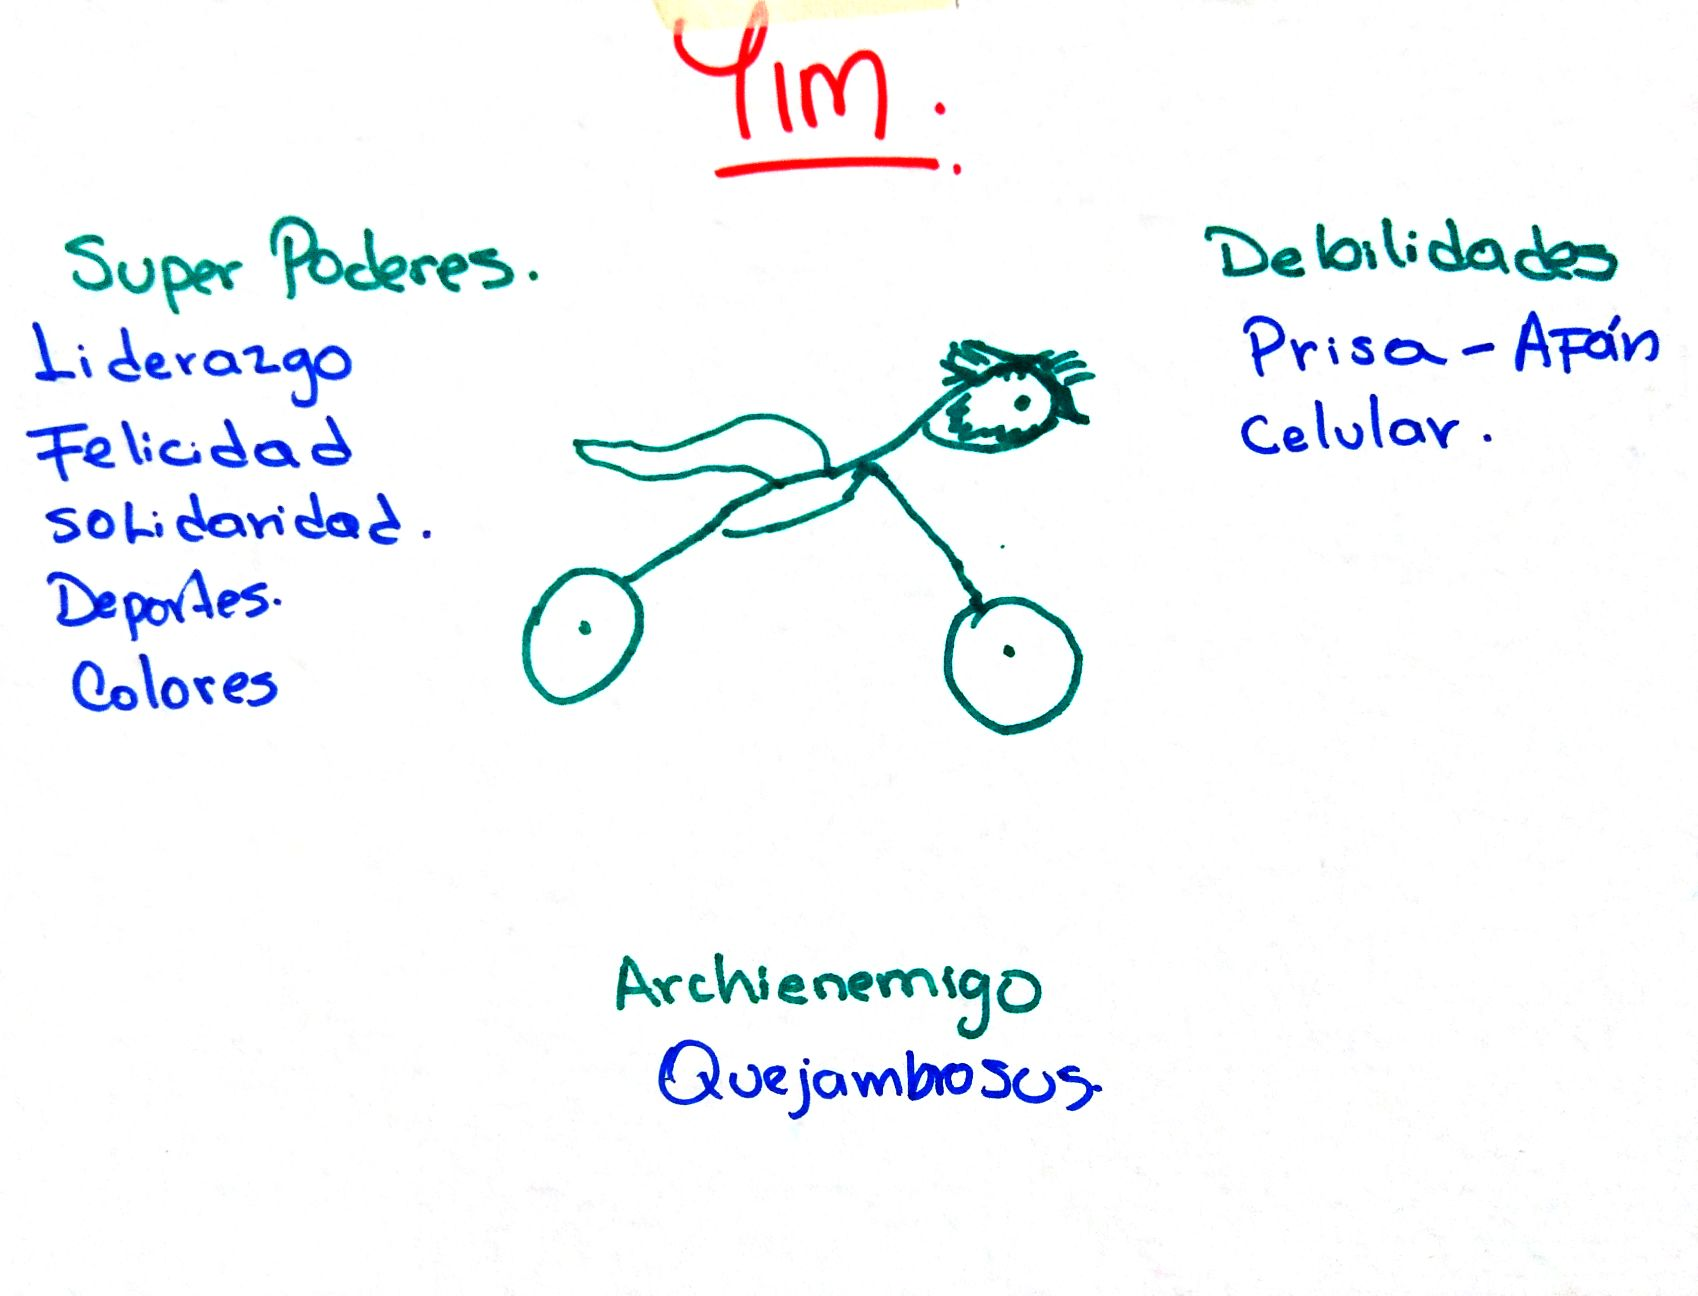 YIM.
Super Poderes.
Liderazgo
Felicidad
solidaridad.
Deportes.
Colores
Debilidades
Prisa - Afán
Celular.
Archienemigo
Quejambrosus.